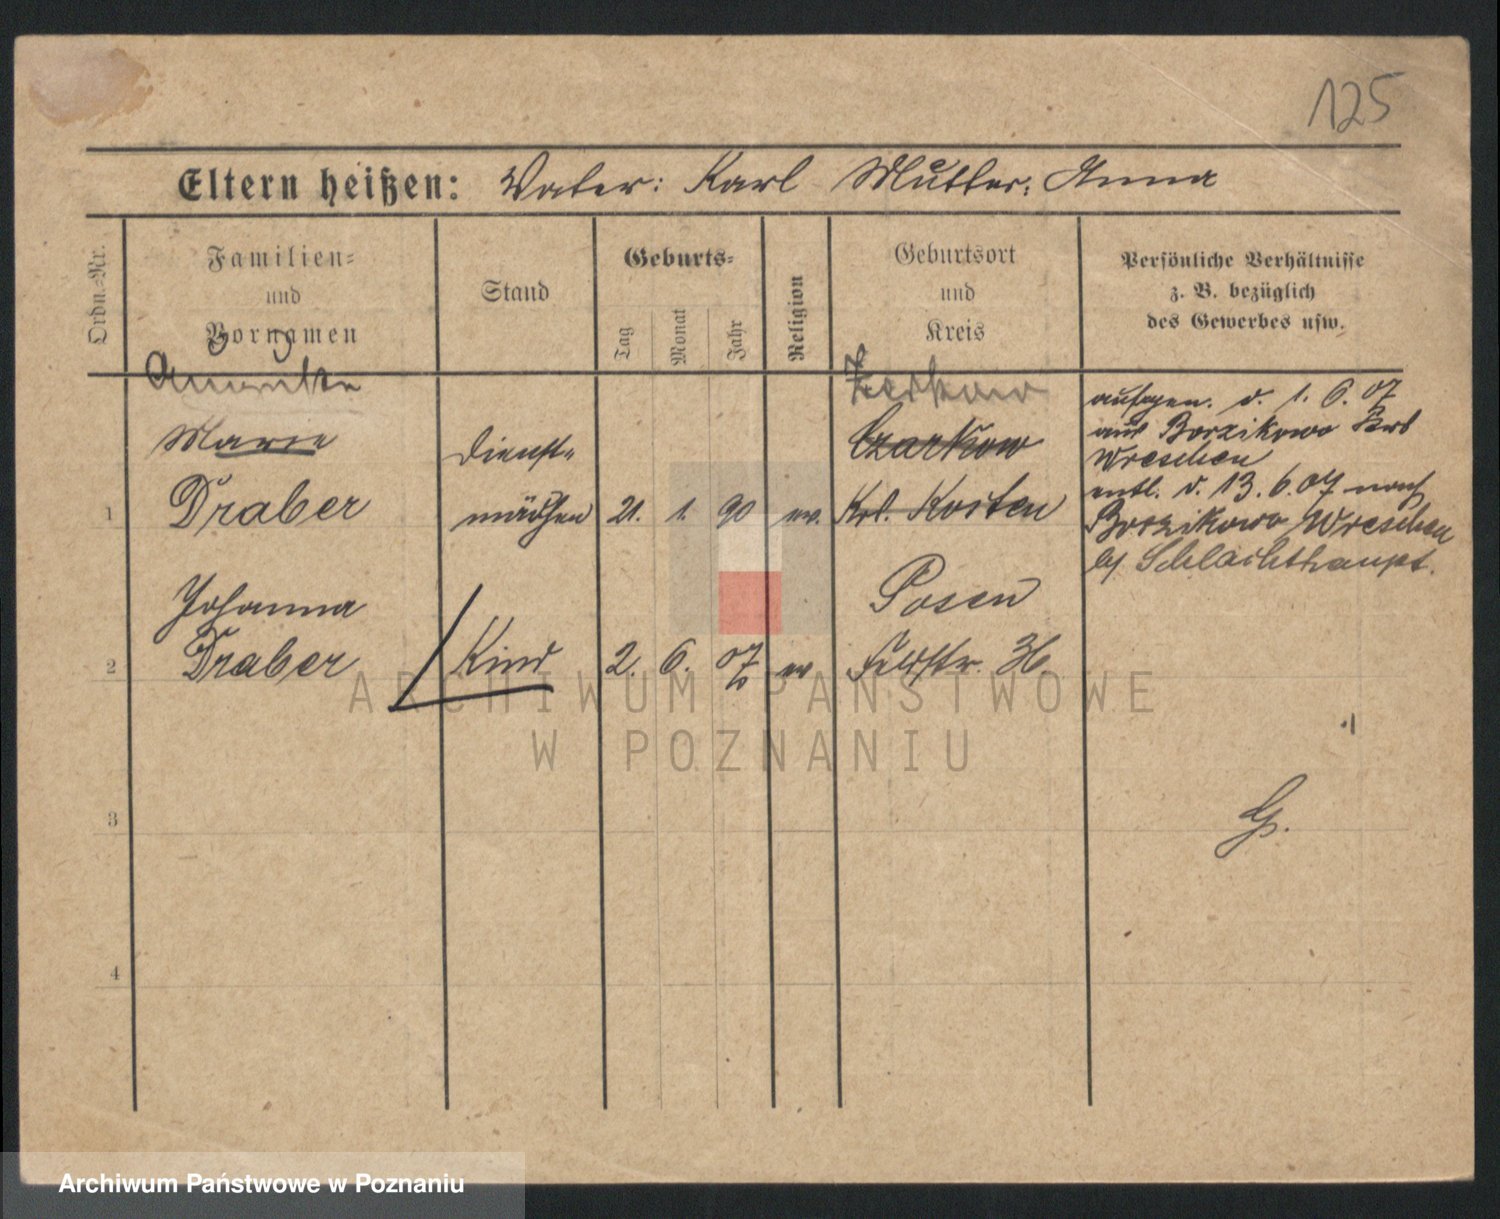 125
Eltern heißen: Vater: Karl Mutter: Anna
Ordn.-Nr.
Familien-
und
Vornamen
Stand
Geburts-
Tag
Monat
Jahr
Religion
Geburtsort
und
Kreis
Persönliche Verhältnisse
z. B. bezüglich
des Gewerbes usw.
Zerkow
Marie
Draber
1
Dienst-
mädchen
21. 1. 90
ev.
Czarkow
Krs. Kosten
aufgen. d. 1. 6. 07
aus Borzikowo Krs
Wreschen
entl. d. 13. 6. 07 nach
Borzikowo Wreschen
b/ Schlachthaupt.
Johanna
Draber
2
Kind
2. 6. 07
ev
Posen
Feldstr. 36
3
G.
4
ARCHIWUM PAŃSTWOWE
W POZNANIU
Archiwum Państwowe w Poznaniu